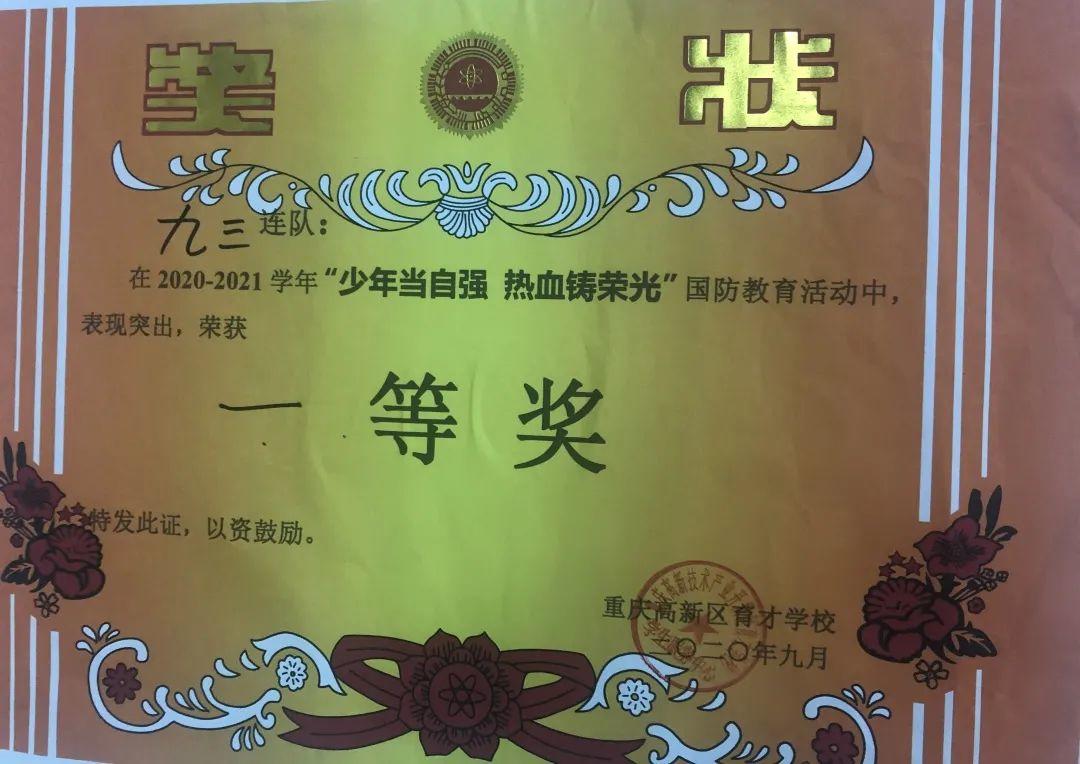 奖 状
九三连队：
在2020-2021学年“少年当自强 热血铸荣光”国防教育活动中，
表现突出，荣获
一等奖
特发此证，以资鼓励。
重庆高新区育才学校
二〇二〇年九月